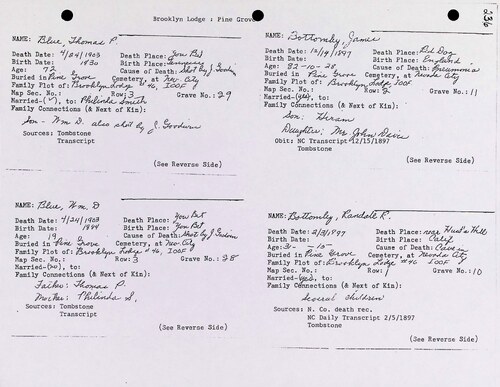 Brooklyn Lodge : Pine Grove
236
NAME: Blue, Thomas P.
Death Date: 4/24/1903 Death Place: You Bet
Birth Date: 1830 Birth Place: Tennessee
Age: 72 Cause of Death: Shot by J. Goodwin
Buried in Pine Grove Cemetery, at Nev. City
Family Plot of: Brooklyn Lodge #46, IOOF
Map Sec. No.: Row: 3 Grave No.: 29
Married-(✓), to: Philinda Smith
Family Connections (& Next of Kin):
Son - Wm D. also shot by J. Goodwin
Sources: Tombstone
Transcript
(See Reverse Side)
NAME: Bottomley, James
Death Date: 12/14/1897 Death Place: Red Dog
Birth Date: Birth Place: England
Age: 82-10-28 Cause of Death: Pneumonia
Buried in Pine Grove Cemetery, at Nevada City
Family Plot of: Brooklyn Lodge IOOF
Map Sec. No.: Row: 2 Grave No.: 11
Married-(yes), to:
Family Connections (& Next of Kin):
Son: Hiram
Daughter: Mrs John Davis
Obit: NC Transcript 12/15/1897
Tombstone
(See Reverse Side)
NAME: Blue, Wm. D
Death Date: 4/24/1903 Death Place: You Bet
Birth Date: 1884 Birth Place: You Bet
Age: 19 Cause of Death: Shot by J. Goodwin
Buried in Pine Grove Cemetery, at Nev. City
Family Plot of: Brooklyn Lodge #46, IOOF
Map Sec. No.: Row: 3 Grave No.: 28
Married-(no), to:
Family Connections (& Next of Kin):
Father: Thomas P.
Mother: Philinda S.
Sources: Tombstone
Transcript
(See Reverse Side)
NAME: Bottomley, Randall R.
Death Date: 2/3/1897 Death Place: near Hunt's Hill
Birth Date: Birth Place: Calif
Age: 31- -15 Cause of Death: Cave in
Buried in Pine Grove Cemetery, at Nevada City
Family Plot of: Brooklyn Lodge #46 IOOF
Map Sec. No.: Row: 1 Grave No.: 10
Married-(yes), to:
Family Connections (& Next of Kin):
several children
Sources: N. Co. death rec.
NC Daily Transcript 2/5/1897
Tombstone
(See Reverse Side)